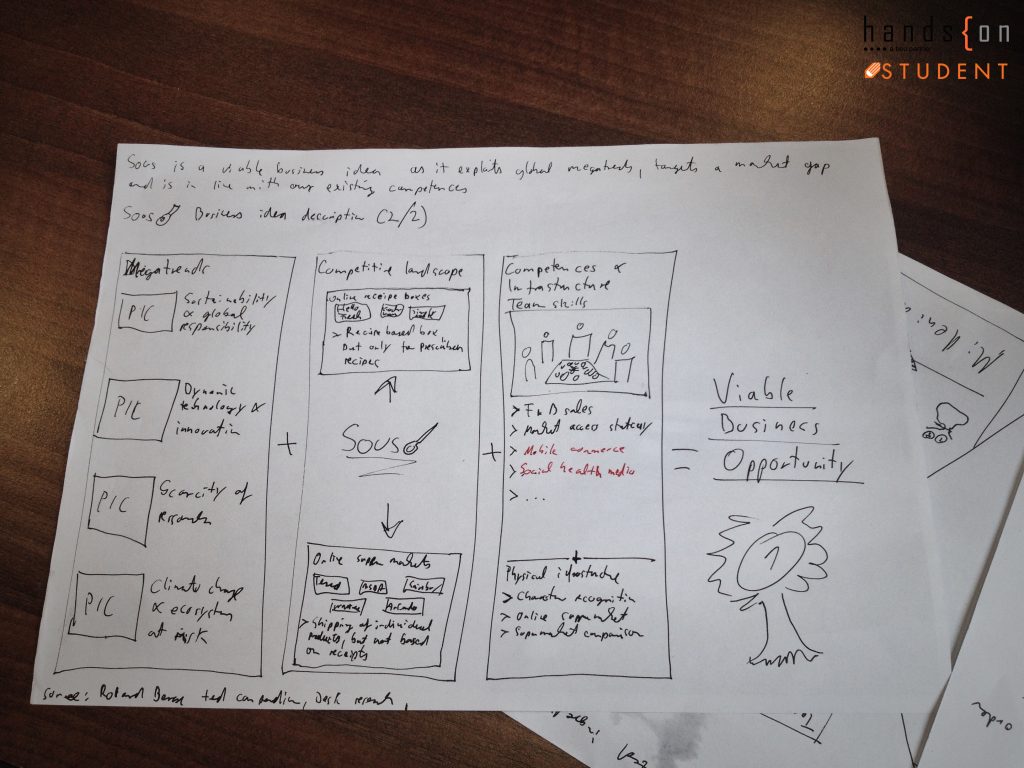 hands{on
a bwa partner
STUDENT
Sous is a viable business idea as it exploits global megatrends, targets a market gap
and is in line with our existing competences
Sous Business idea description (2/2)
Megatrends
PIC
Sustainability
& global
responsibility
PIC
Dynamic
technology &
innovation
PIC
Scarcity of
PIC
Climate change
& ecosystem
at risk
+
Competitive landscape
Online receipe boxes
Hello
Fresh
> Recipe based box
but only for
recipes
Sous
Online supermarkets
Tesco
ASDA
Ocado
> Shipping of individual
products, but not based
on receipts
+
Competences &
Infrastructure
Team skills
> F&B sales
> Market access strategy
> Mobile commerce
> Social health media
> ...
+
Physical infrastructure
> Character recognition
> Online supermarket
> Supermarket comparison
=
Viable
Business
Opportunity
1
Source: Roland Berger trend compendium, Desk research,
order